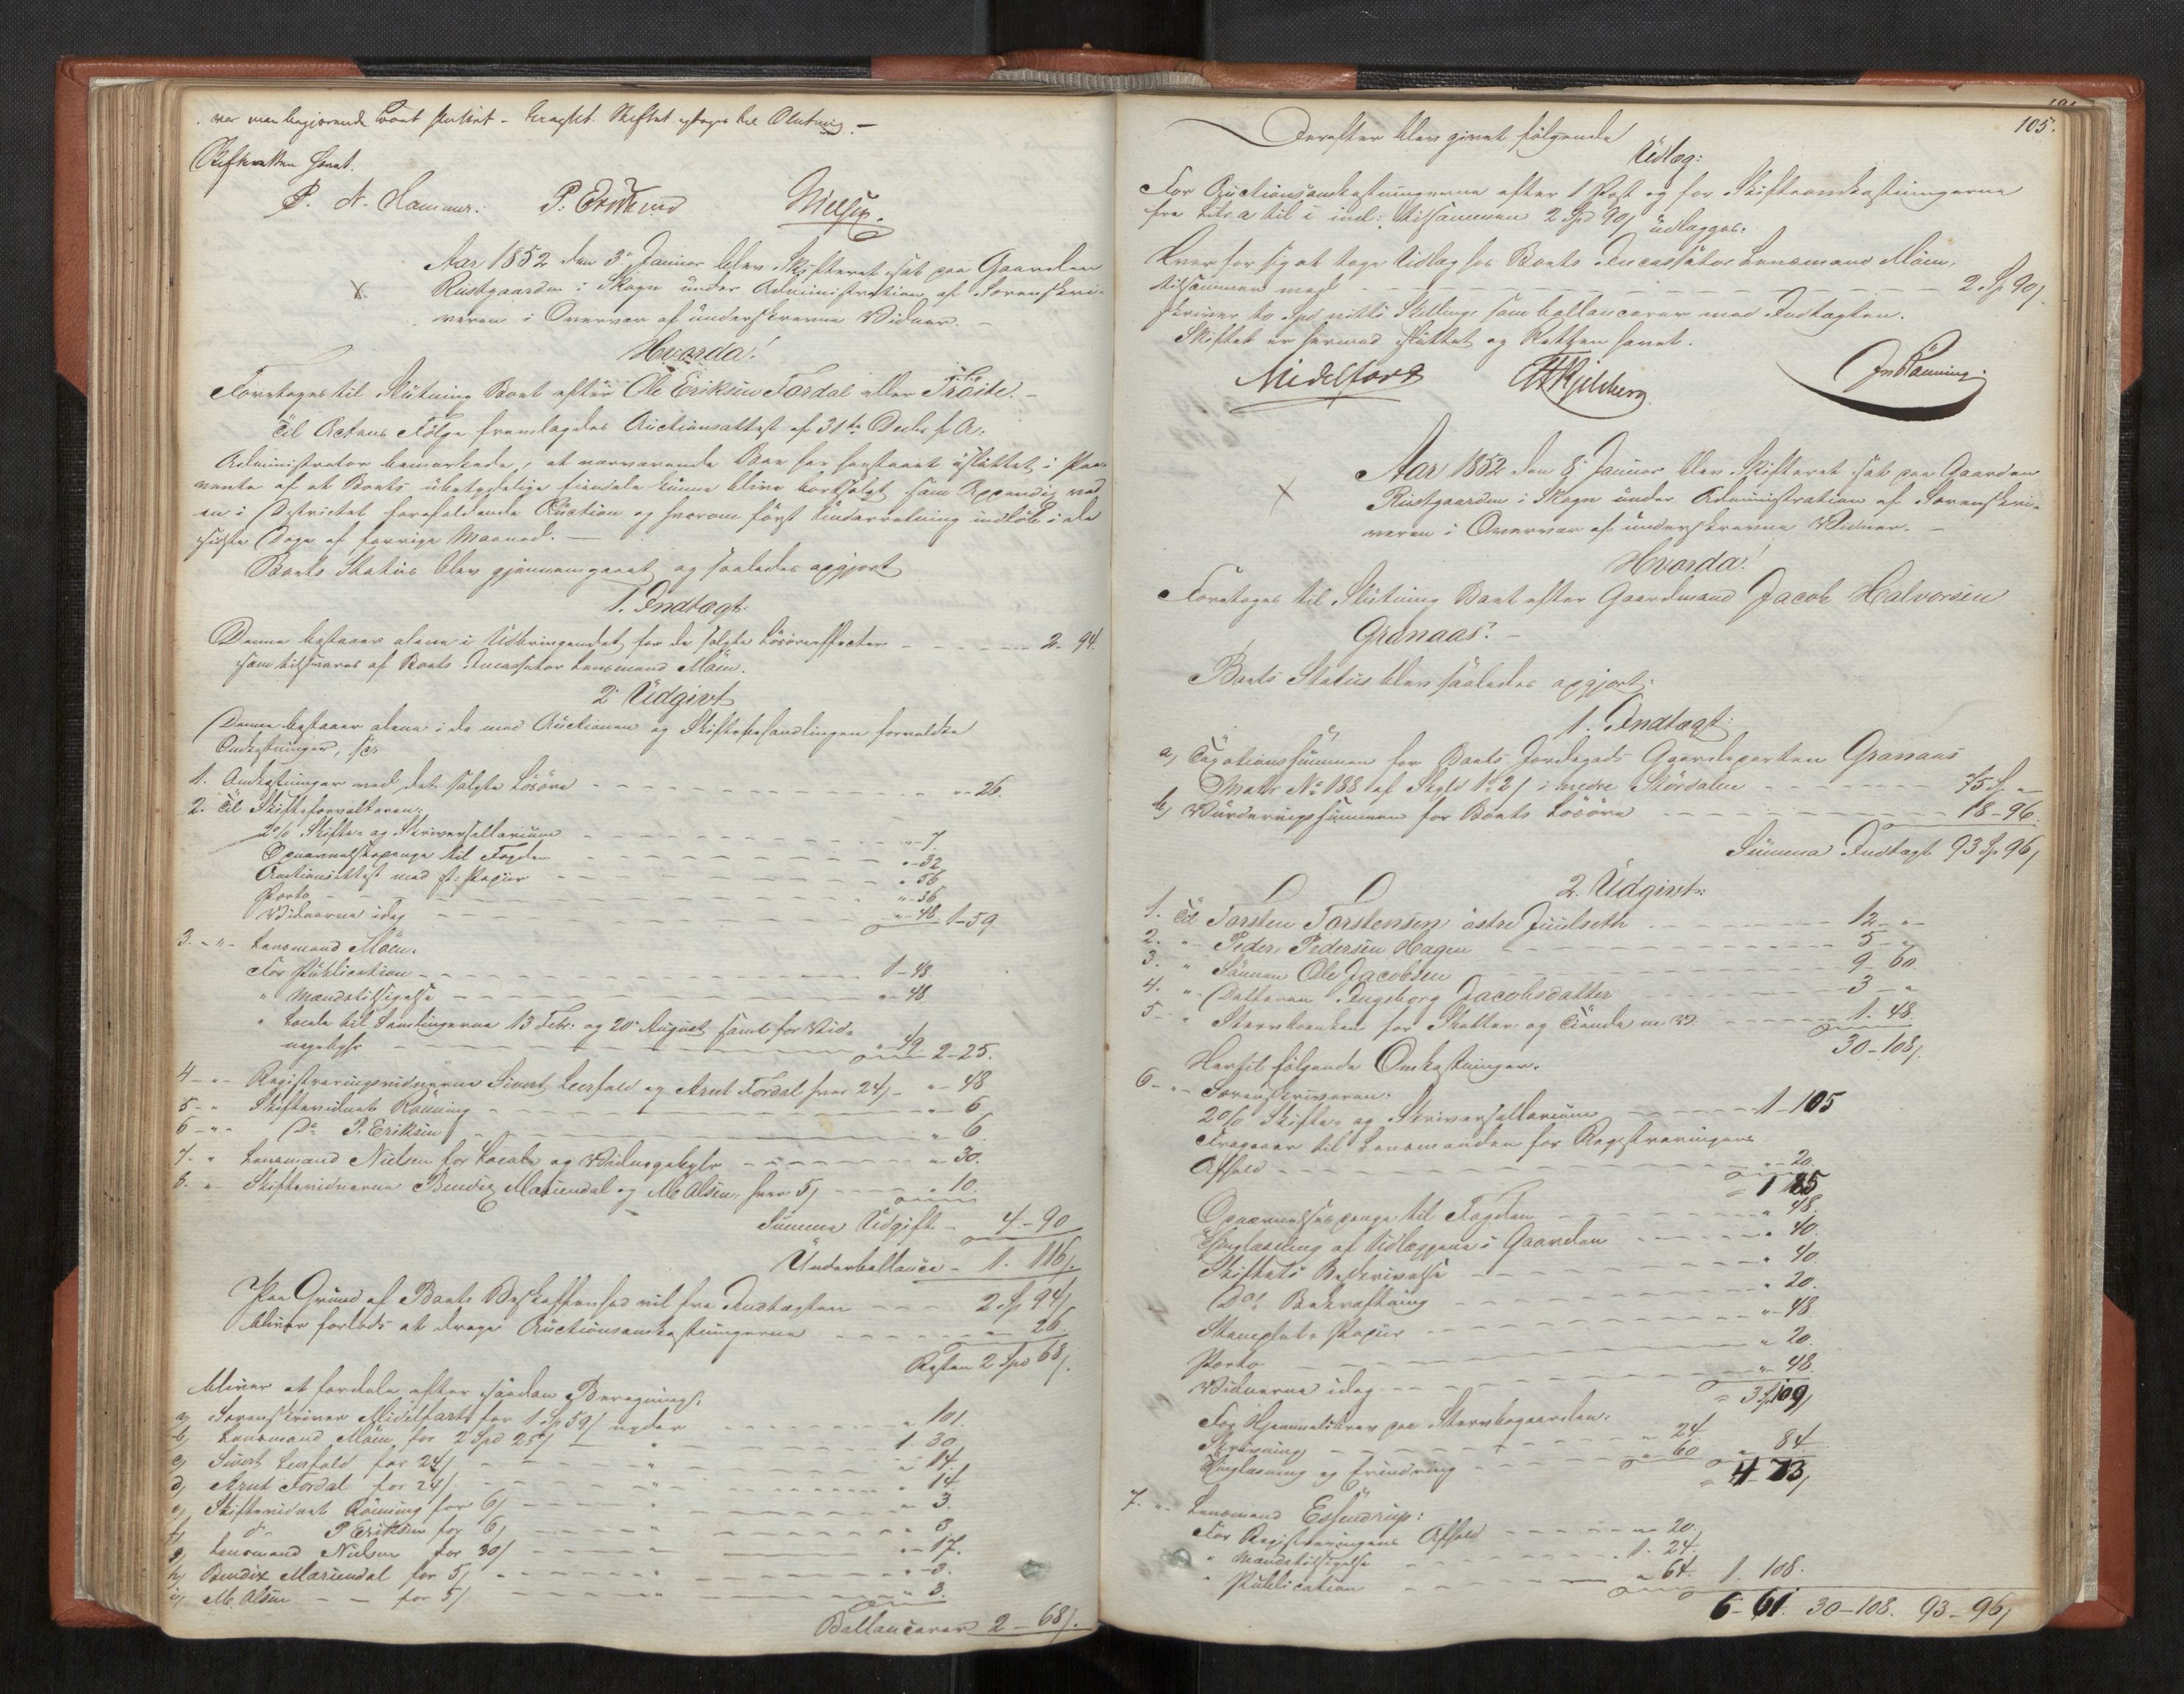 var man begjerende Boet sluttet. Skiftet optages til Slutning.
Skifteretten hævet.
P. N. Hammer. P. Eriksen Nielsen.
Aar 1852 den 3. Januar blev Skifteret sat paa Gaarden
Rustgaarden i Skogn under Administration af Sorenskri-
veren i Overvær af underskrevne Vidner. –
Hvorda!
Foretoges til Slutning Boet efter Ole Eriksen Fordal eller Troite. –
Til Actens Følge fremlagdes Auctionsattest af 31te Decbr f. A.
Administrator bemærkede, at nærværende Boe har henstaaet usluttet i Paa-
vente af at Boets ubetydelige Eiendele kunne blive bortsolgt som Appendix ved
en i Districtet forefaldende Auction og hvorom først Underretning indløb i de
sidste Dage af forrige Maaned. –
Boets Status blev gjennemgaaet og saaledes opgjort
1. Indtægt
Denne bestaaer alene i Udbringendet for de solgte Løsøreeffecter - - - 2 - 94.
som tilsvares af Boets Incassator Lensmand Möen.
2. Udgivt
Denne bestaaer alene i de med Auctionen og Skiftebehandlingen forvoldte
Omkostninger, sc:
1. Omkostninger ved det solgte Løsøre - - - " - 26.
2. Til Skifteforvalteren:
2% Skifte- og Skriversallarium - - - " - 7.
Opnævnelsespenge til Fogden - - - " - 32
Auctionsattest med st. Papiir - - - " 56
Porto - - - " - 36
Vidnerne idag - - - " - 48. 1 - 59
3. - " - Lensmand Möen.
For Publication - - - 1 - 48.
" Mandstilsigelse - - - " - 48.
" Locale til Samlingerne 13 Febr. og 20 August samt for Vid-
negebyhr - - - " - 49. 2 - 25.
4 - " - Registreringsvidnerne Sivert Leerfald og Arnt Fordal hver 24/ - " - 48
5 - " Skiftevidnet Rønning - - - " - 6
6 - " - Do P. Eriksen - - - " 6
7. " Lensmand Nielsen for Locale og Vidnegebyhr - - - " 30.
8. " - Skiftevidnerne Bendix Mariendal og M. Olsen, hver 5/ - - - " 10
Summa Udgift - 4 - 90
Underballance - 1. 116/.
Paa Grund af Boets Beskaffenhed vil fra Indtægten - - - 2 Sp 94/
blive forlods at drage Auctionsomkostningerne - - - " 26
Resten 2 Spd 68/.
bliver at fordele efter saadan Beregning:
a) Sorenskriver Midelfart for 1 Sp 59/ nyder - - - " 101.
b) Lensmand Möen for 2 Spd 25/ - " - - - 1. 30
c) Sivert Leerfald for 24/ - - - " 14.
d) Arnt Fordal for 24/ - - - " 14.
e) Skiftevidnet Rönning for 6/ - - - " 3.
f) do P Eriksen for 6/ - - - " 3
g) Lensmand Nielsen for 30/ - - - " - 17.
h) Bendix Mariendal for 5/ - - - " - 3.
i) M. Olsen - - for 5/ - - - " 3.
Ballancerer 2 - 68/.
105.
Derefter blev givet følgende
Udlæg:
For Auctionsomkostningerne efter 1 Post og for Skifteomkostningerne
fra Litr a til i incl: tilsammen 2 Spd 90/ udlægges.
Hver for sig at tage Udlæg hos Boets Incassator Lensmand Möen,
tilsammen med - - - 2 Sp 90/.
skriver to Spd nitti Skilling som ballancerer med Indtægten.
Skiftet er hermed sluttet og Retten hævet.
Midelfart Kjelsberg Rönning
Aar 1852 den 8. Januar blev Skifteret sat paa Gaarden
Rustgaarden i Skogn under Administration af Sorenskri-
veren i Overvær af underskrevne Vidner. –
Hvorda!
Foretoges til Slutning Boet efter Gaardmand Jacob Halvorsen
Granaas. –
Boets Status blev saaledes opgjort:
1. Indtægt:
a) Taxationssummen for Boets Jordegods Gaardeparten Granaas
Matr No 188 af Skyld 1 2/ i nedre Stördalen - - - 75 Sp "
b) Vurderingssummen for Boets Løsøre - - - 18 - 96.
Summa Indtægt 93 Sp 96/
2. Udgivt:
1. Til Torsten Torstensen östre Juulseth - - - 12 - "
2. " Peder Pedersen Hagen - - - 5 - "
3. " Sønnen Ole Jacobsen - - - 9 - 60.
4. " Datteren Ingeborg Jacobsdatter - - - 3 - "
5 - " Stervboenken for Skatter og Tiende m. V. - - - 1. 48.
30 - 108/.
Hertil følgende Omkostninger.
6 - " - Sorenskriveren:
2% Skifte- og Skriversallarium - - - 1 - 105
Fragaaer til Lensmanden for Registreringens
Afhold - - - " 20.
= 1 85
Opnævnelsespenge til Fogden - - - " 48.
Thinglæsning af Udlæggene i Gaarden - - - " 40.
Skiftets Beskrivelse - - - " 40
Dos Bekræftning - - - " 20.
Stemplet Papiir - - - " - 48
Porto - - - " 20.
Vidnerne idag - - - " - 48.
= 3 Sp 109/
For Hjemmelsbrev paa Stervbogaarden:
Skrivning - - - " 24
Thinglæsning og Erindring - - - " 60 " 84
= 4 73/
7. " - Lensmand Essendrup:
For Registreringens Afhold - - - " 20.
" Mandstilsigelse - - - 1. 24.
" Publication - - - " 64. 1. 108.
6 - 61. 30 - 108. 93 - 96/